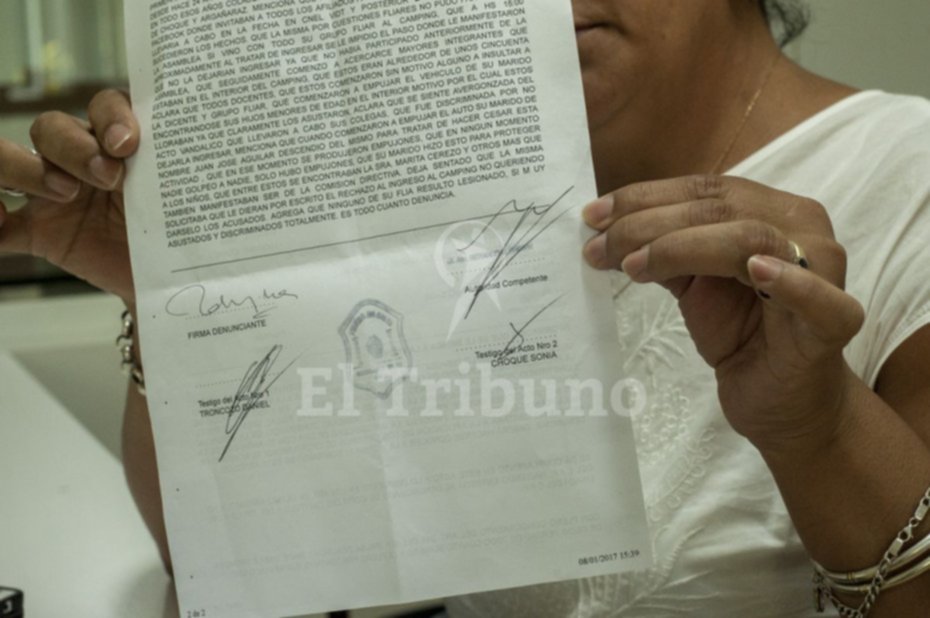 DE CHOQUE Y ARGAÑARAZ. MENCIONA QUE
LLEVARIA A CABO EN LA FECHA EN CNEL
SUCEDIERON LOS HECHOS, QUE LA MISMA POR CUESTIONES FLIARES NO PUDO
ASAMBLEA SI VINO CON TODO SU GRUPO FLIAR AL CAMPING, QUE A HS 16:00
APROXIMADAMENTE AL TRATAR DE INGRESAR SE LE IMPIDIO EL PASO DONDE LE MANIFESTARON
QUE NO LA DEJARIAN INGRESAR YA QUE NO HABIA PARTICIPADO ANTERIORMENTE DE LA
ASAMBLEA, QUE SEGUIDAMENTE COMENZO A ACERCARCE MAYORES INTEGRANTES QUE
ESTABAN EN EL INTERIOR DEL CAMPING, QUE ESTOS ERAN ALREDEDOR DE UNOS CINCUENTA
ACLARA QUE TODOS DOCENTES, QUE ESTOS COMENZARON SIN MOTIVO ALGUNO A INSULTAR A
LA DOCENTE Y GRUPO FLIAR, QUE COMENZARON A EMPUJAR EL VEHICULO DE SU MARIDO
ENCONTRANDOSE SUS HIJOS MENORES DE EDAD EN EL INTERIOR MOTIVO POR EL CUAL ESTOS
LLORABAN YA QUE CLARAMENTE LOS ASUSTARON, ACLARA QUE SE SIENTE AVERGONZADA DEL
ACTO VANDALICO QUE LLEVARON A CABO SUS COLEGAS, QUE FUE DISCRIMINADA POR NO
DEJARLA INGRESAR, MENCIONA QUE CUANDO COMENZARON A EMPUJAR EL AUTO SU MARIDO DE
NOMBRE JUAN JOSE AGUILAR DESCENDIO DEL MISMO PARA TRATAR DE HACER CESAR ESTA
ACTIVIDAD, QUE EN ESE MOMENTO SE PRODUJERON EMPUJONES, QUE EN NINGUN MOMENTO
NADIE GOLPEO A NADIE, SOLO HUBO EMPUJONES, QUE SU MARIDO HIZO ESTO PARA PROTEGER
A LOS NIÑOS, QUE ENTRE ESTOS SE ENCONTRABAN LA SRA. MARITA CEREZO Y OTROS MAS QUE
TAMBIEN MANIFESTABAN SER DE LA COMISION DIRECTIVA. DEJA SENTADO QUE LA MISMA
SOLICITABA QUE LE DIERAN POR ESCRITO EL RECHAZO AL INGRESO AL CAMPING NO QUERIENDO
DARSELO LOS ACUSADOS. AGREGA QUE NINGUNO DE SU FLIA RESULTO LESIONADO, SI M UY
ASUSTADOS Y DISCRIMINADOS TOTALMENTE. ES TODO CUANTO DENUNCIA.
Autoridad Competente
FIRMA DENUNCIANTE
Testigo del Acto Nro 2
CHOQUE SONIA
Testigo del Acto Nro 1
TRONCOZO DANIEL
El Tribuno
08/01/2017 15:39
2 de 2